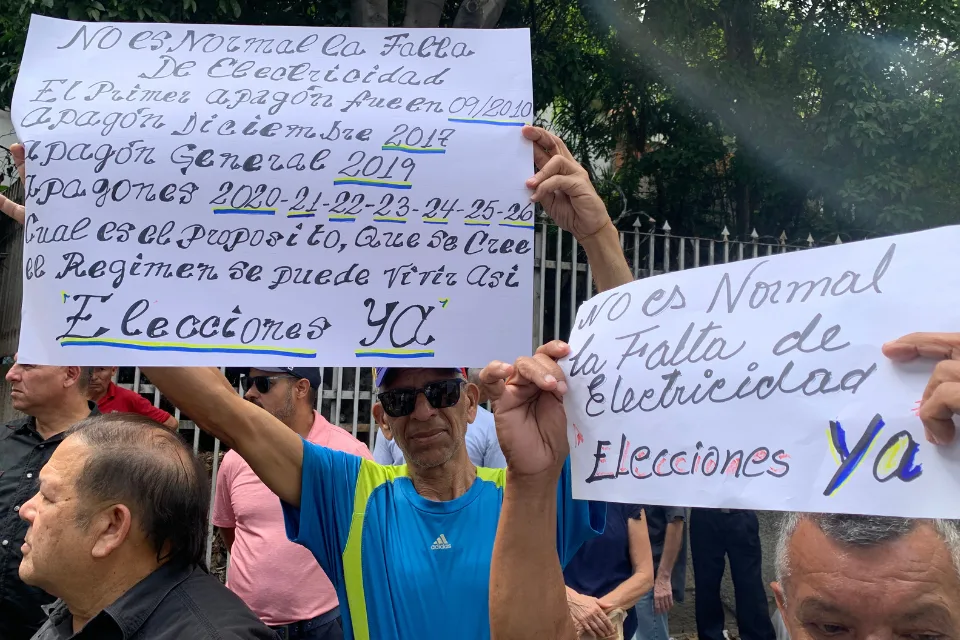 No es Normal la Falta
De Electricidad
El Primer apagón fue en 09/2010
apagón Diciembre 2017
apagón General 2019
apagones 2020-21-22-23-24-25-26
Cual es el Proposito, Que se Cree
el Regimen se puede Vivir Asi
"Elecciones YA"
No es Normal
la Falta de
Electricidad
Elecciones Ya
adidas